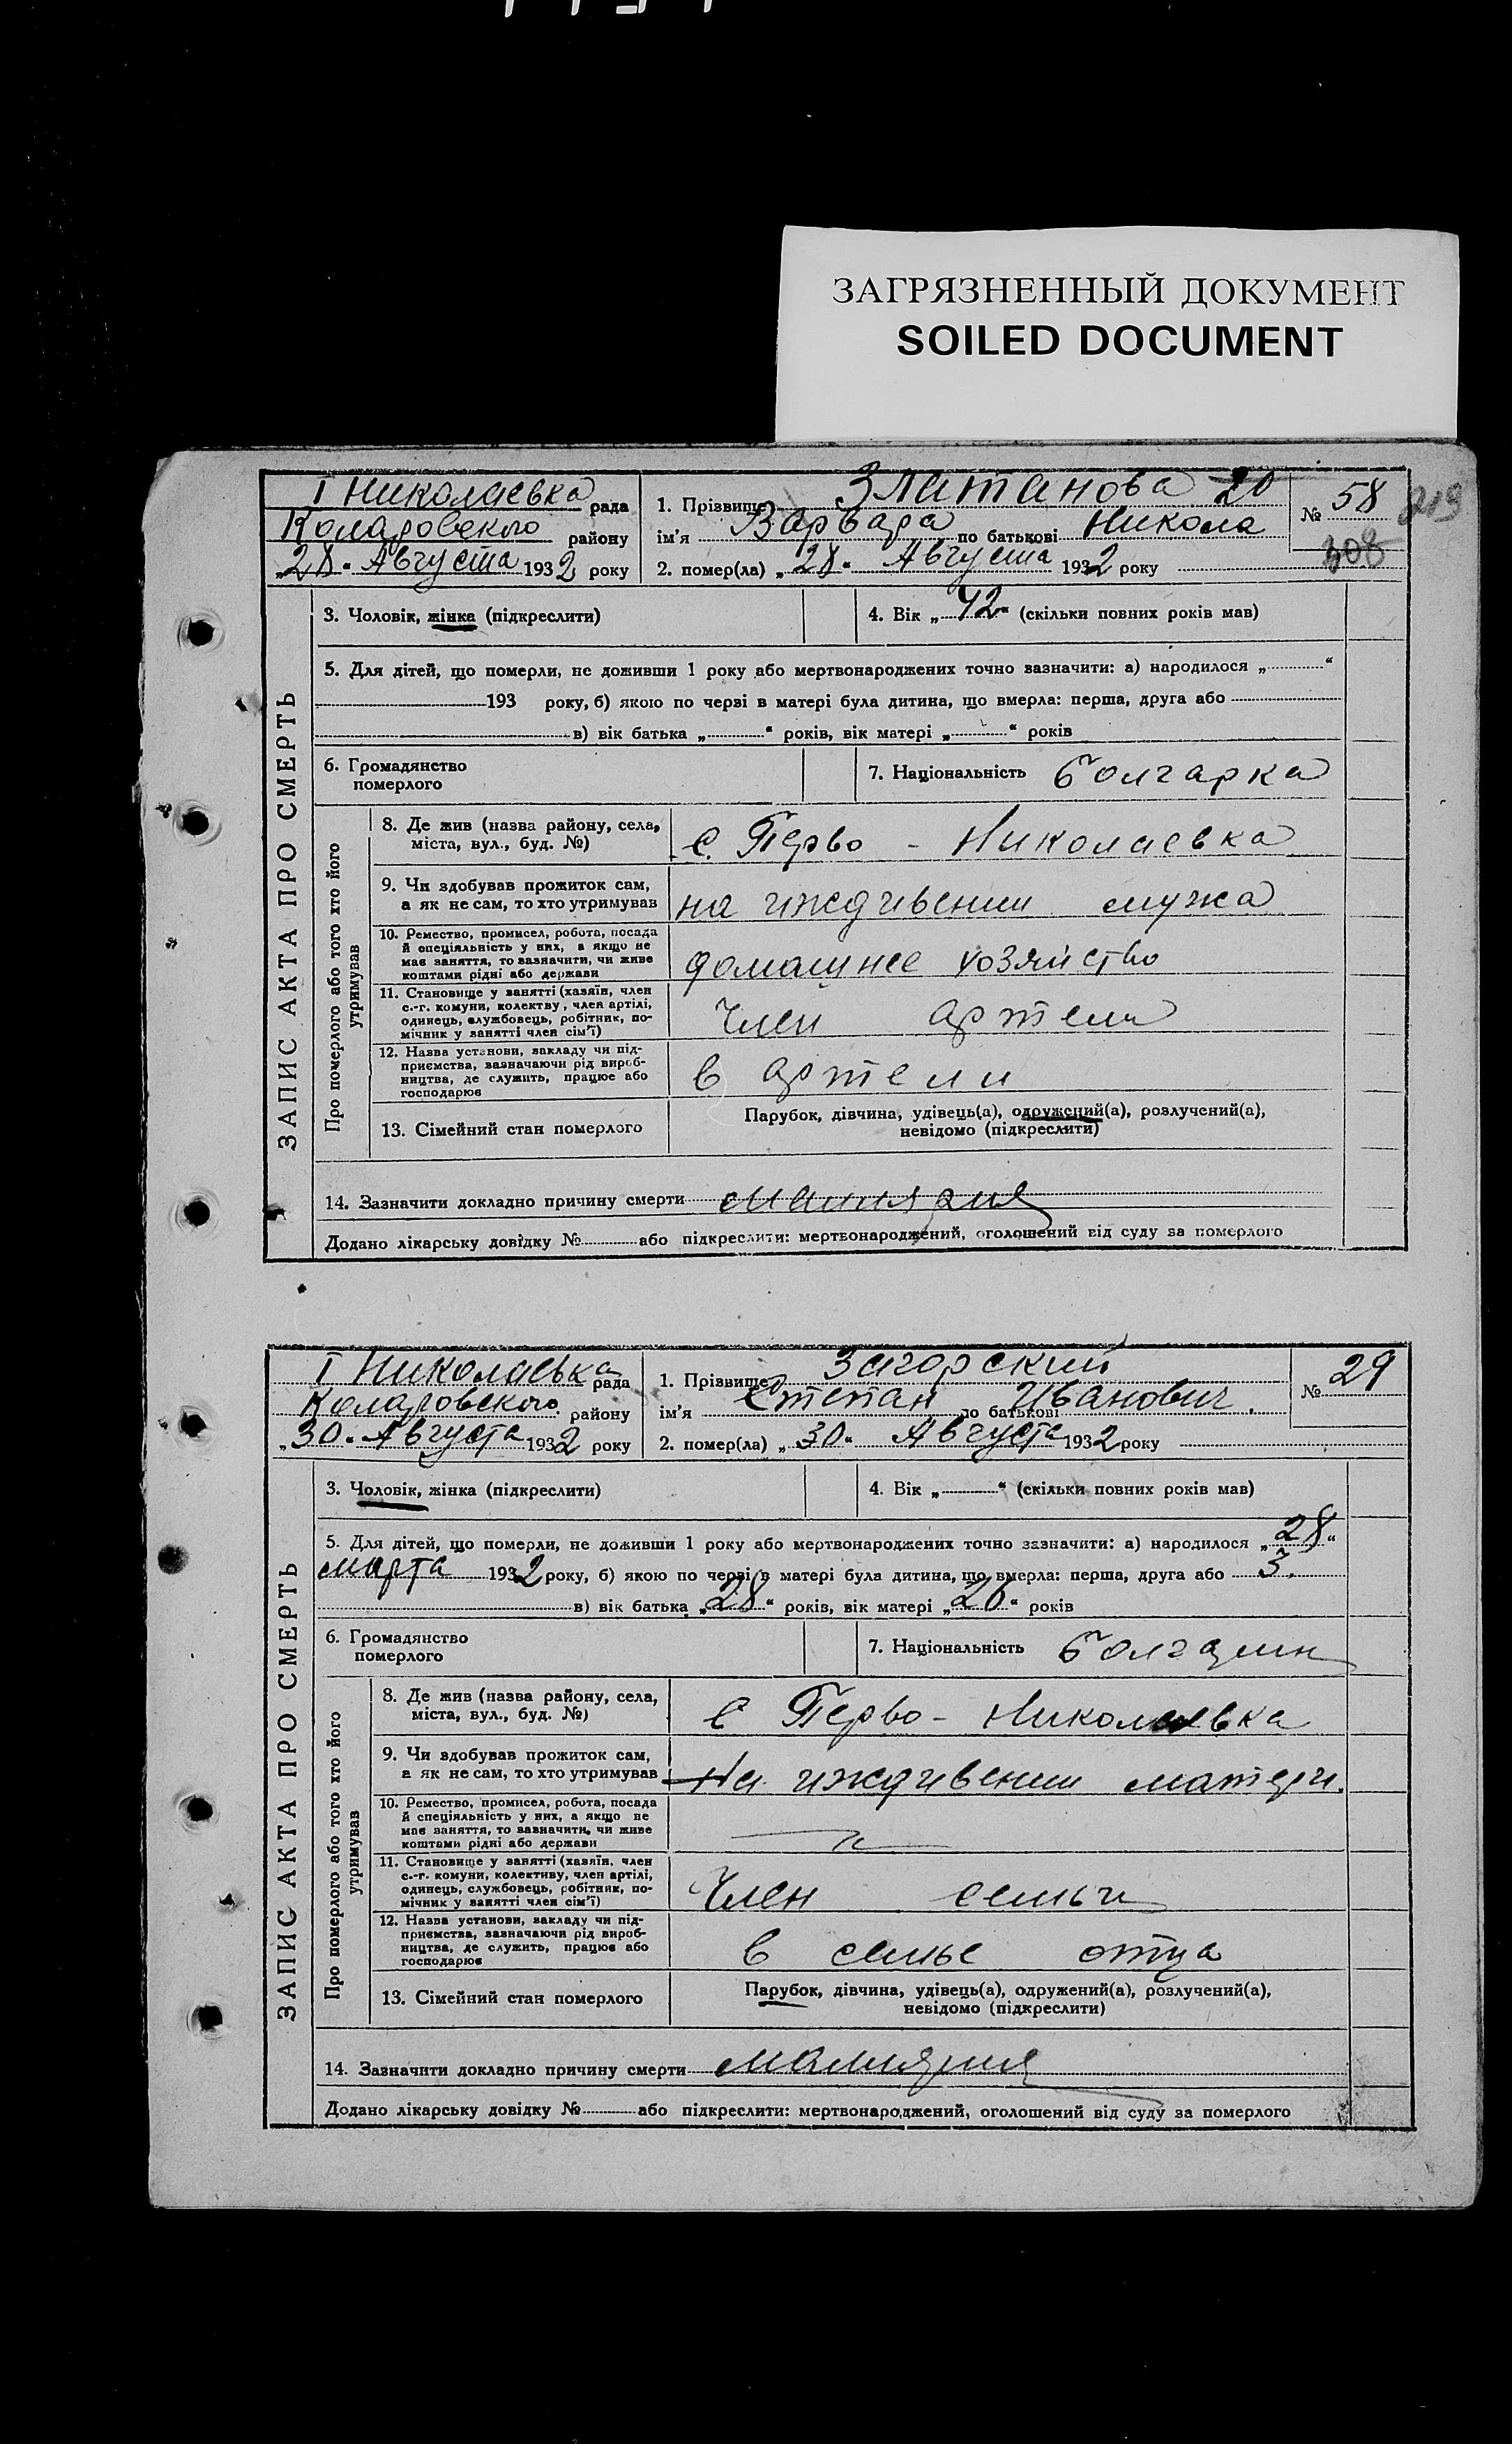 ЗАГРЯЗНЕННЫЙ ДОКУМЕНТ
SOILED DOCUMENT
I Николаевка рада
Коларовского району
„28“ Августа 1932 року
1. Прізвище Златанова 20
ім'я Варвара по батькові Никола
2. помер(ла) „28“ Августа 1932 року
№ 58
219
308
ЗАПИС АКТА ПРО СМЕРТЬ
3. Чоловік, жінка (підкреслити)
4. Вік „42“ (скільки повних років мав)
5. Для дітей, що померли, не доживши 1 року або мертвонароджених точно зазначити: а) народилося „ “
193 року, б) якою по черві в матері була дитина, що вмерла: перша, друга або
в) вік батька „ “ років, вік матері „ “ років
6. Громадянство
померлого
7. Національність болгарка
Про померлого або того хто його
утримував
8. Де жив (назва району, села,
міста, вул., буд. №)
с. Перво - Николаевка
9. Чи здобував прожиток сам,
а як не сам, то хто утримував
на иждивении мужа
10. Ремество, промисел, робота, посада
й спеціяльність у них, а якщо не
має заняття, то зазначити, чи живе
коштами рідні або держави
домашнее хозяйство
11. Становище у занятті (хазяїн, член
с.-г. комуни, колектву, член артілі,
одинець, службовець, робітник, по-
мічник у занятті член сім'ї)
Член артели
12. Назва установи, закладу чи під-
приємства, зазначаючи рід вироб-
ництва, де служить, працює або
господарює
в артели
13. Сімейний стан померлого
Парубок, дівчина, удівець(а), одружений(а), розлучений(а),
невідомо (підкреслити)
14. Зазначити докладно причину смерти малярия
Додано лікарську довідку № або підкреслити: мертвонароджений, оголошений від суду за померлого
I Николаевка рада
Коларовского району
„30“ Августа 1932 року
1. Прізвище Загорский
ім'я Степан по батькові Иванович.
2. помер(ла) „30“ Августа 1932 року
№ 29
ЗАПИС АКТА ПРО СМЕРТЬ
3. Чоловік, жінка (підкреслити)
4. Вік „ “ (скільки повних років мав)
5. Для дітей, що померли, не доживши 1 року або мертвонароджених точно зазначити: а) народилося „28“
марта 1932 року, б) якою по черві в матері була дитина, що вмерла: перша, друга або 3.
в) вік батька „28“ років, вік матері „26“ років
6. Громадянство
померлого
7. Національність болгарин
Про померлого або того хто його
утримував
8. Де жив (назва району, села,
міста, вул., буд. №)
с Перво - Николаевка
9. Чи здобував прожиток сам,
а як не сам, то хто утримував
На иждивении матери.
10. Ремество, промисел, робота, посада
й спеціяльність у них, а якщо не
має заняття, то зазначити, чи живе
коштами рідні або держави
11. Становище у занятті (хазяїн, член
с.-г. комуни, колективу, член артілі,
одинець, службовець, робітник, по-
мічник у занятті член сім'ї)
Член семьи
12. Назва установи, закладу чи під-
приємства, зазначаючи рід вироб-
ництва, де служить, працює або
господарює
в семье отца
13. Сімейний стан померлого
Парубок, дівчина, удівець(а), одружений(а), розлучений(а),
невідомо (підкреслити)
14. Зазначити докладно причину смерти малярия
Додано лікарську довідку № або підкреслити: мертвонароджений, оголошений від суду за померлого